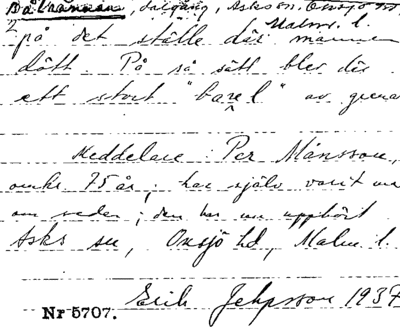 Bålhånnan, Salgång, Asks sn, Onsjö hd
2 Malm. l.
på det ställe där mannen
dött. På så sätt blev där
ett stort "bavel" av grena
Meddelare: Per Månsson,
omkr 75 år, har själv varit
om seden; den har nu upphört
Asks sn, Onsjö hd, Malm. l.
Erik Jeppsson 1937
Nr 5707.